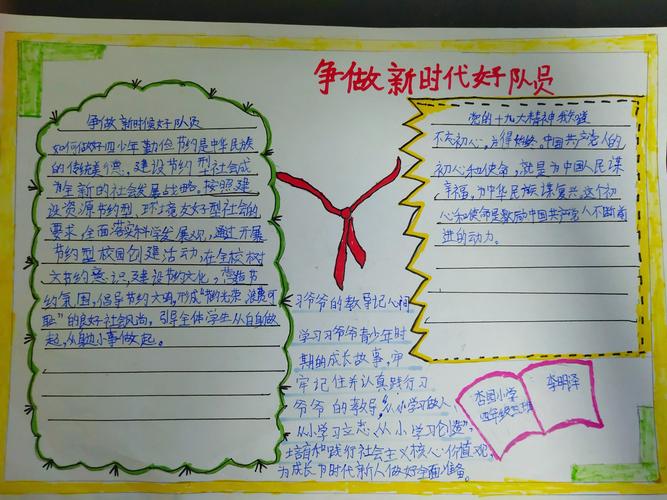 争做新时代好队员
争做新时候好队员
如何做好四少年勤俭节约是中华民族
的传统美德，建设节约型社会成
为全新的社会发展战略。按照建
设资源节约型、环境友好型社会的
要求，全面落实科学发展观，通过开展
节约型校园创建活动，在全校树
立节约意识，建设节约文化，营造节
约氛围，倡导节约文明，形成“节约光荣，浪费可
耻”的良好社会风尚，引导全体学生从自身做
起，从身边小事做起。
党的十九大精神我知道
不忘初心，方得始终。中国共产党人的
初心和使命，就是为中国人民谋
幸福，为中华民族谋复兴。这个初
心和使命是激励中国共产党人不断前
进的动力。
习爷爷的教导记心间
学习习爷爷青少年时
期的成长故事，牢
牢记住并认真践行习
爷爷的教导，“从小学习做人、
从小学习立志、从小学习创造”，
培育和践行社会主义核心价值观，
为成长为时代新人做好全面准备。
杏园小学
四年级五班
李明泽